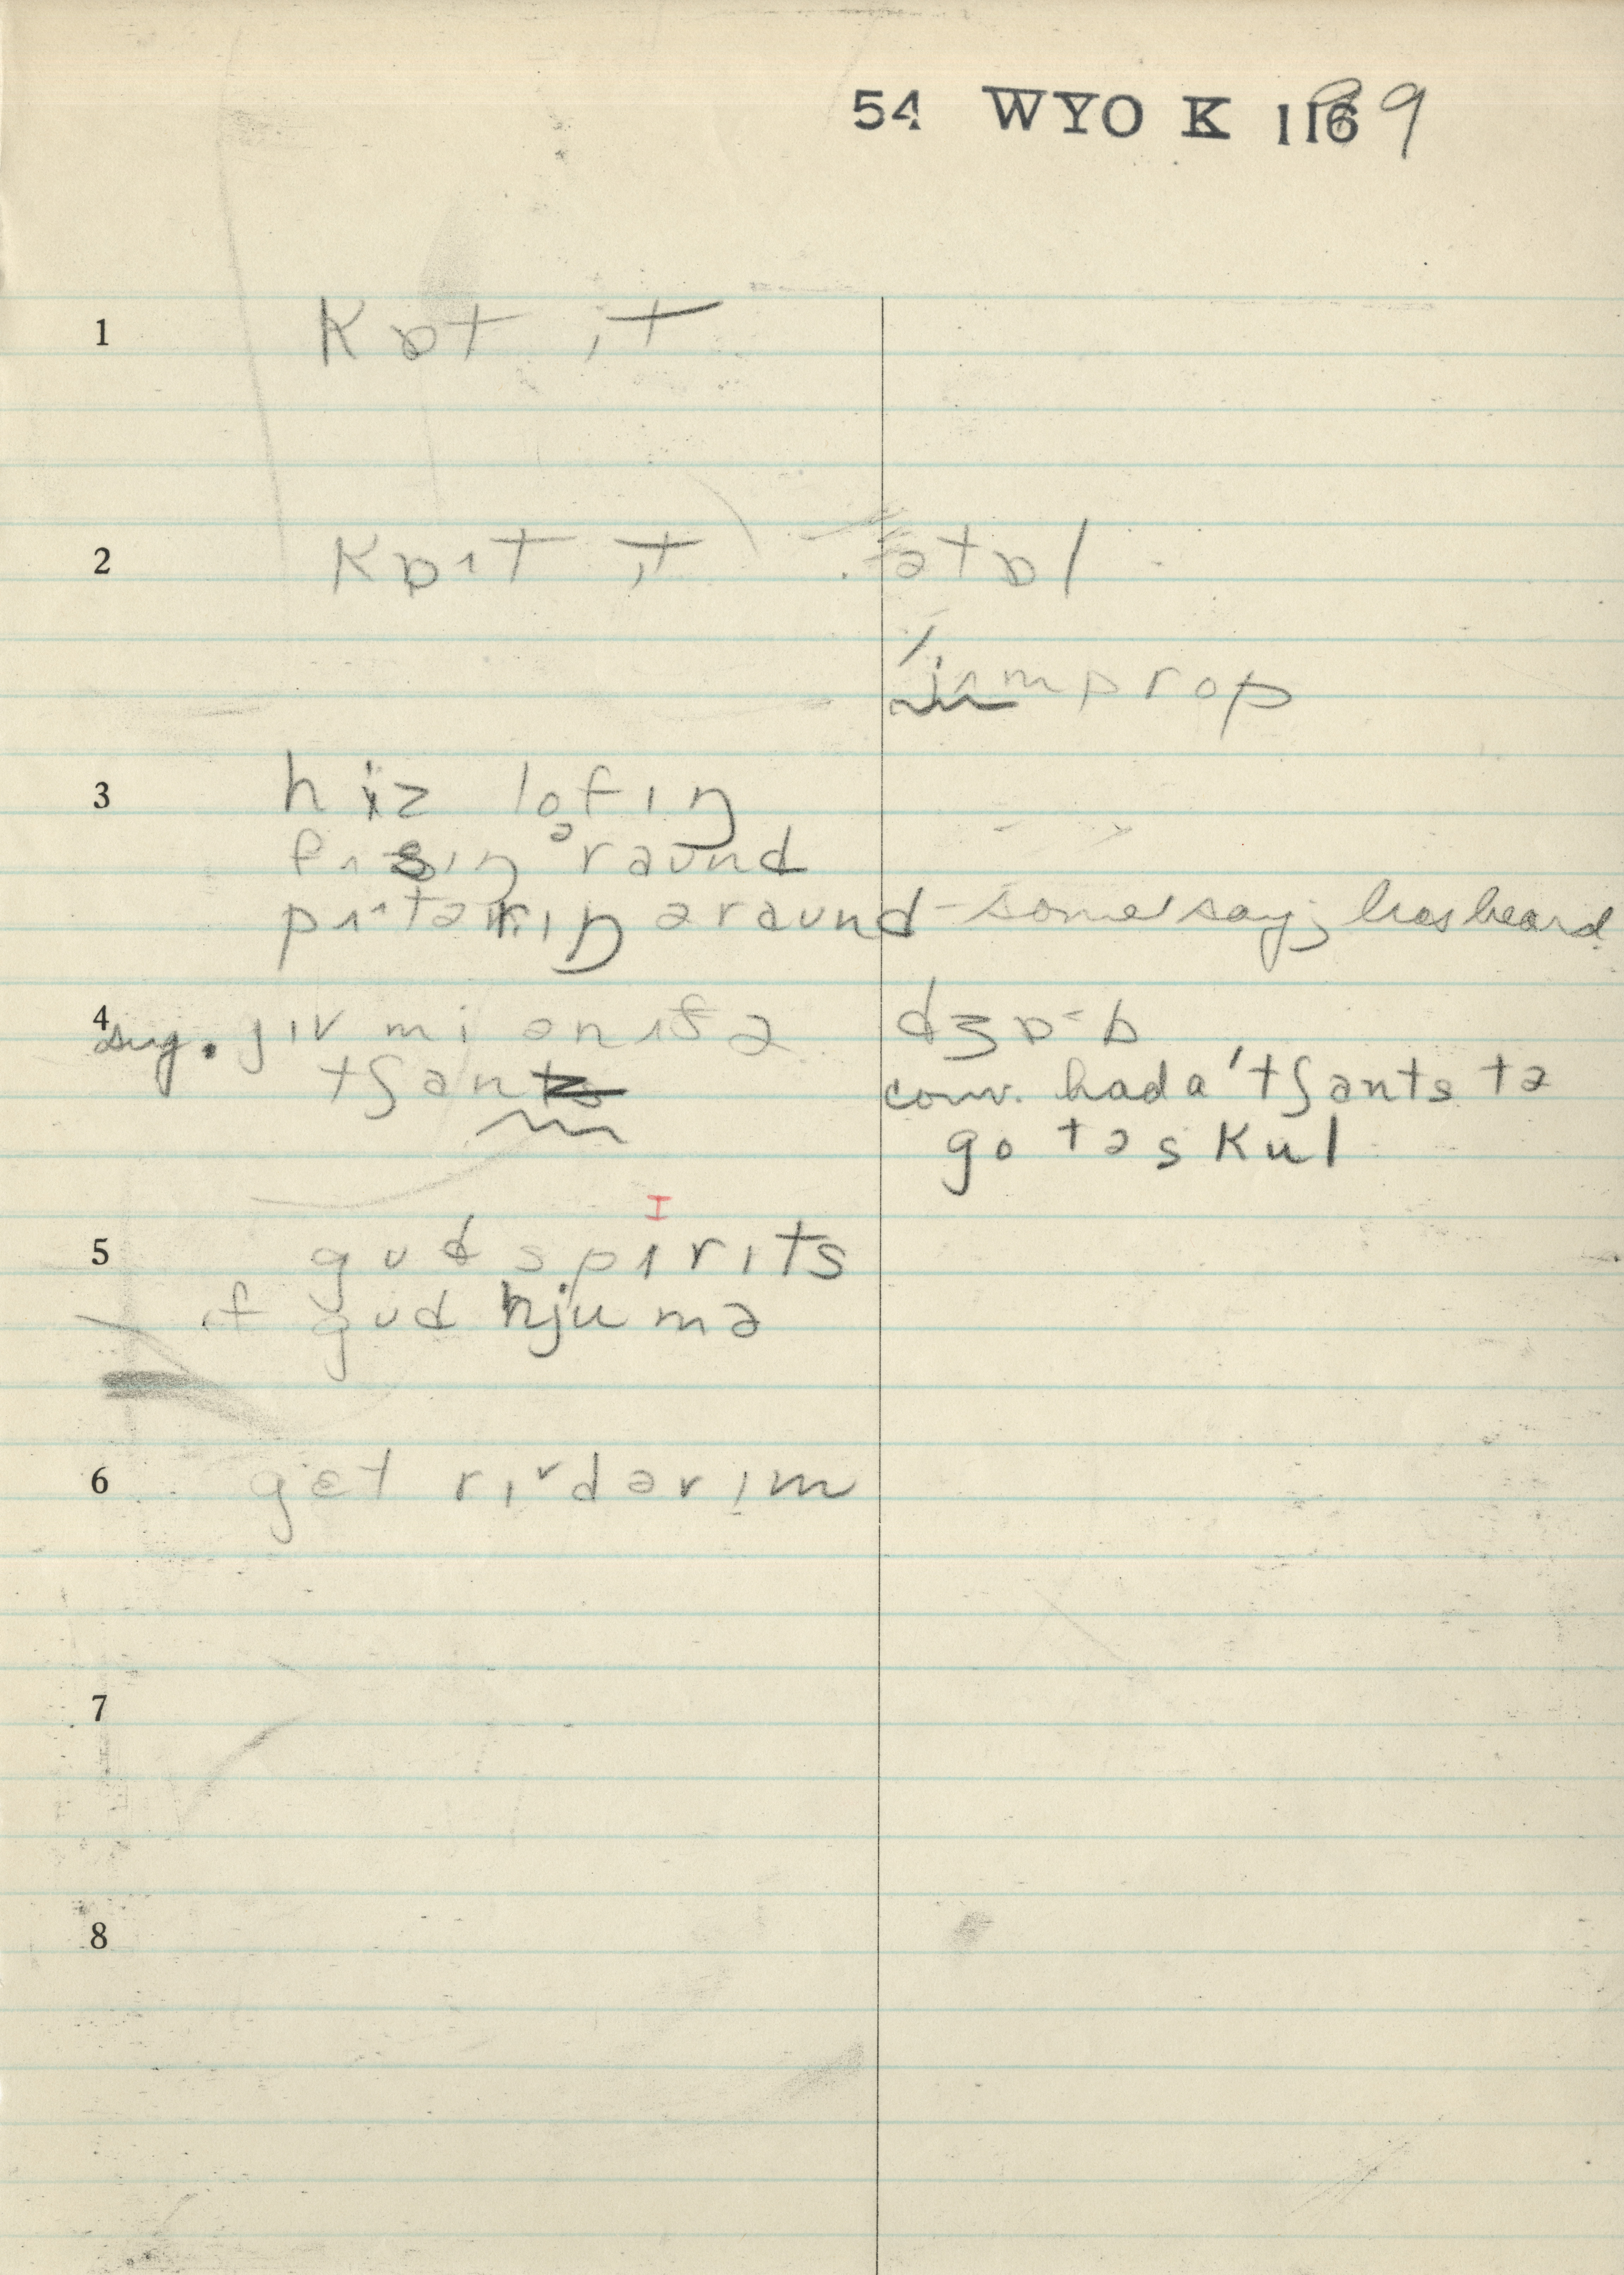 54 WYO K 1169
1 kɒt ɪt
2 kɒɪt ɪt ətɒl
ɪmprop
3 hiz lofɪŋ
əraund
pʌtərɪŋ əraund - some say; has heard
4 sug. gɪv mi ənʌf ə dʒɒ^b
tʃants conv. had a 'tʃants tə
go tə skul
I
5 gʊd spɪrɪts
ɪf gʊd hjumə
6 get rɪ^vdərɪm
7
8